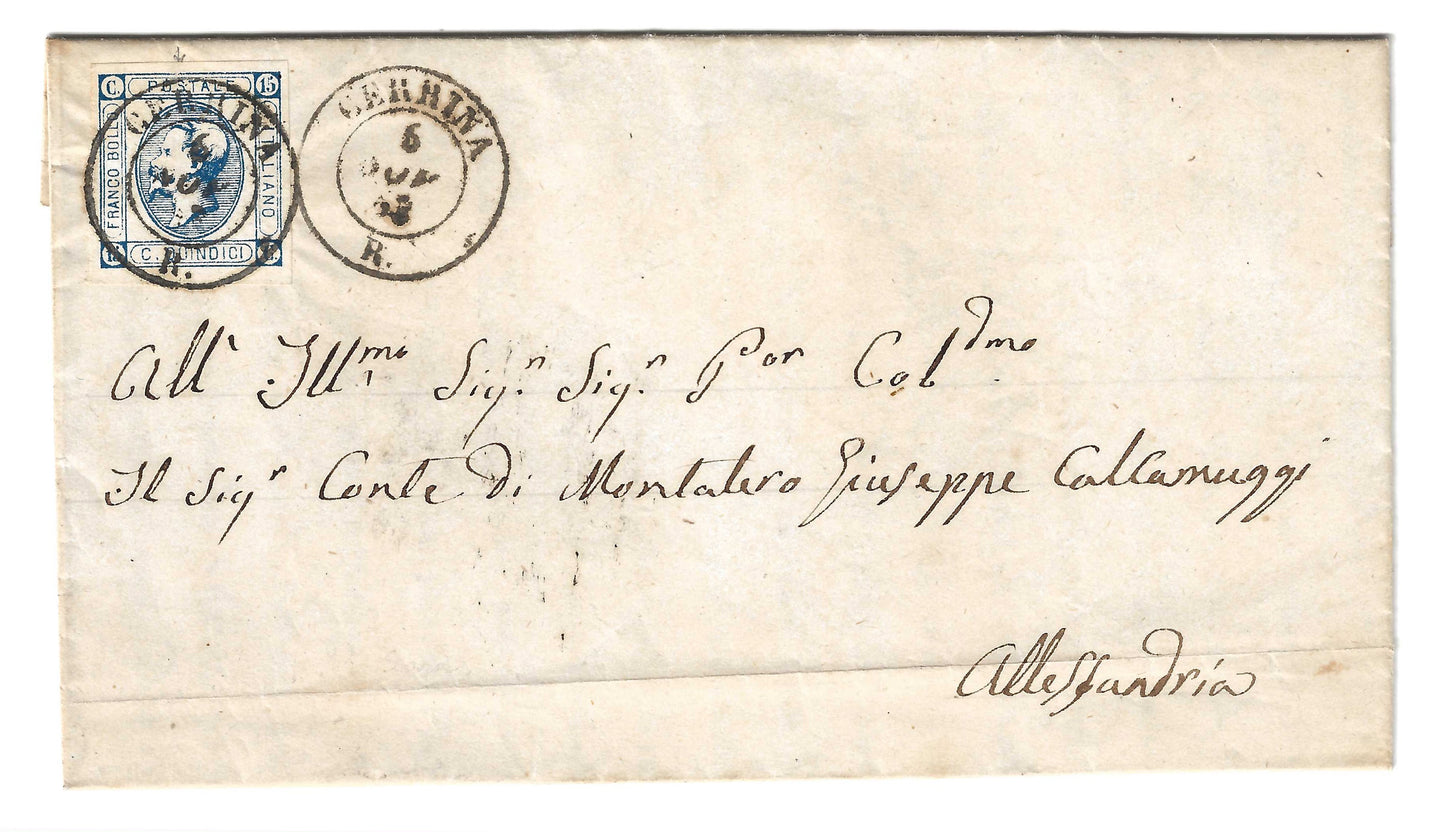 C. POSTALE 15
FRANCO BOLLO
ITALIANO
C. QUINDICI
CERRINA
6
NOV
R.
CERRINA
6
NOV
63
R.
All' Ill.mo Sig.r Sig.r P.or Col.dmo
Il Sig.r Conte di Montalero Giuseppe Callamuggi
Allessandria